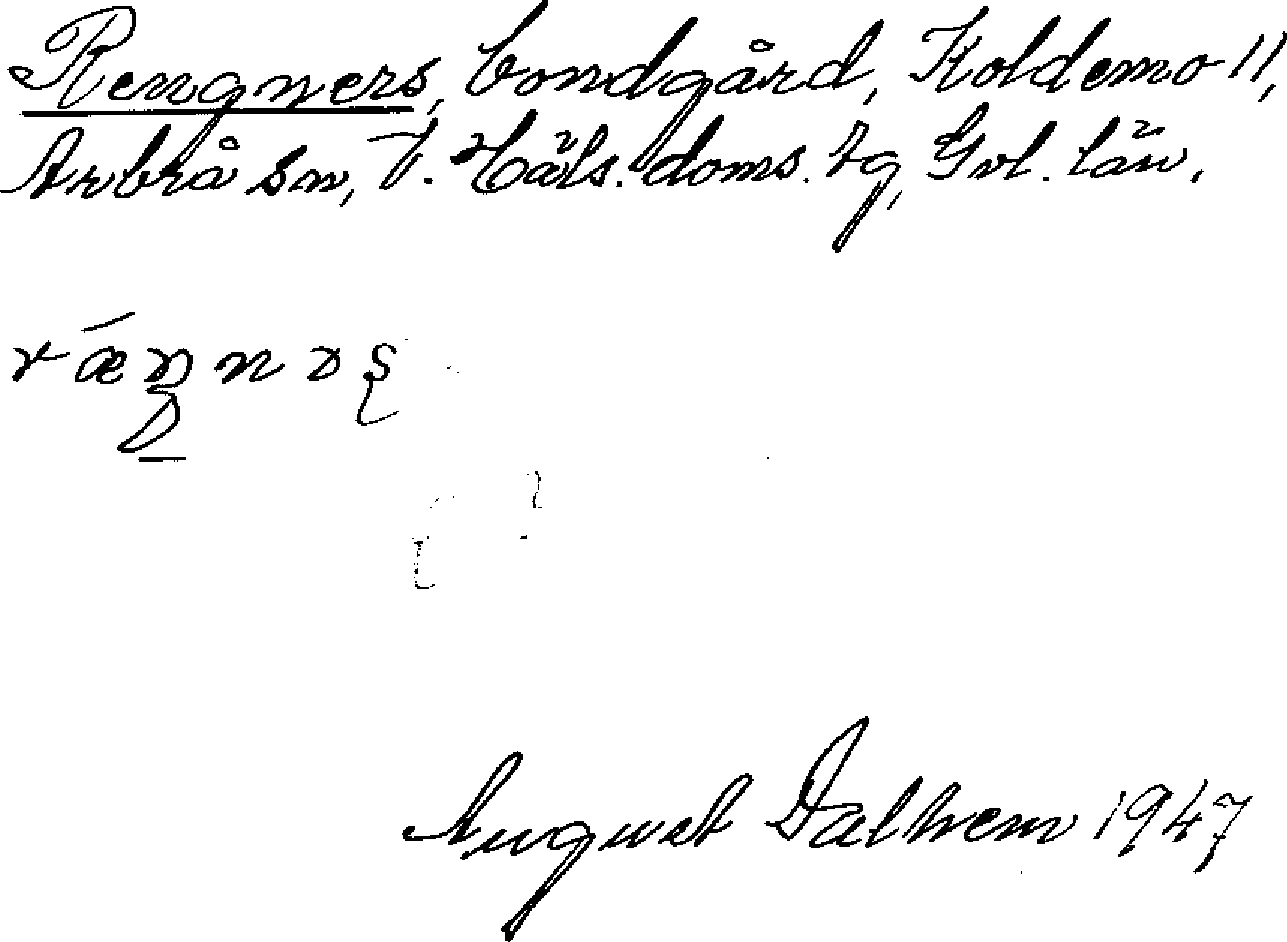 Rengners, bondgård, Koldemo 11,
Arbrå sn, V. Häls. doms. tg, Gvl. län.
August Dalhem 1947